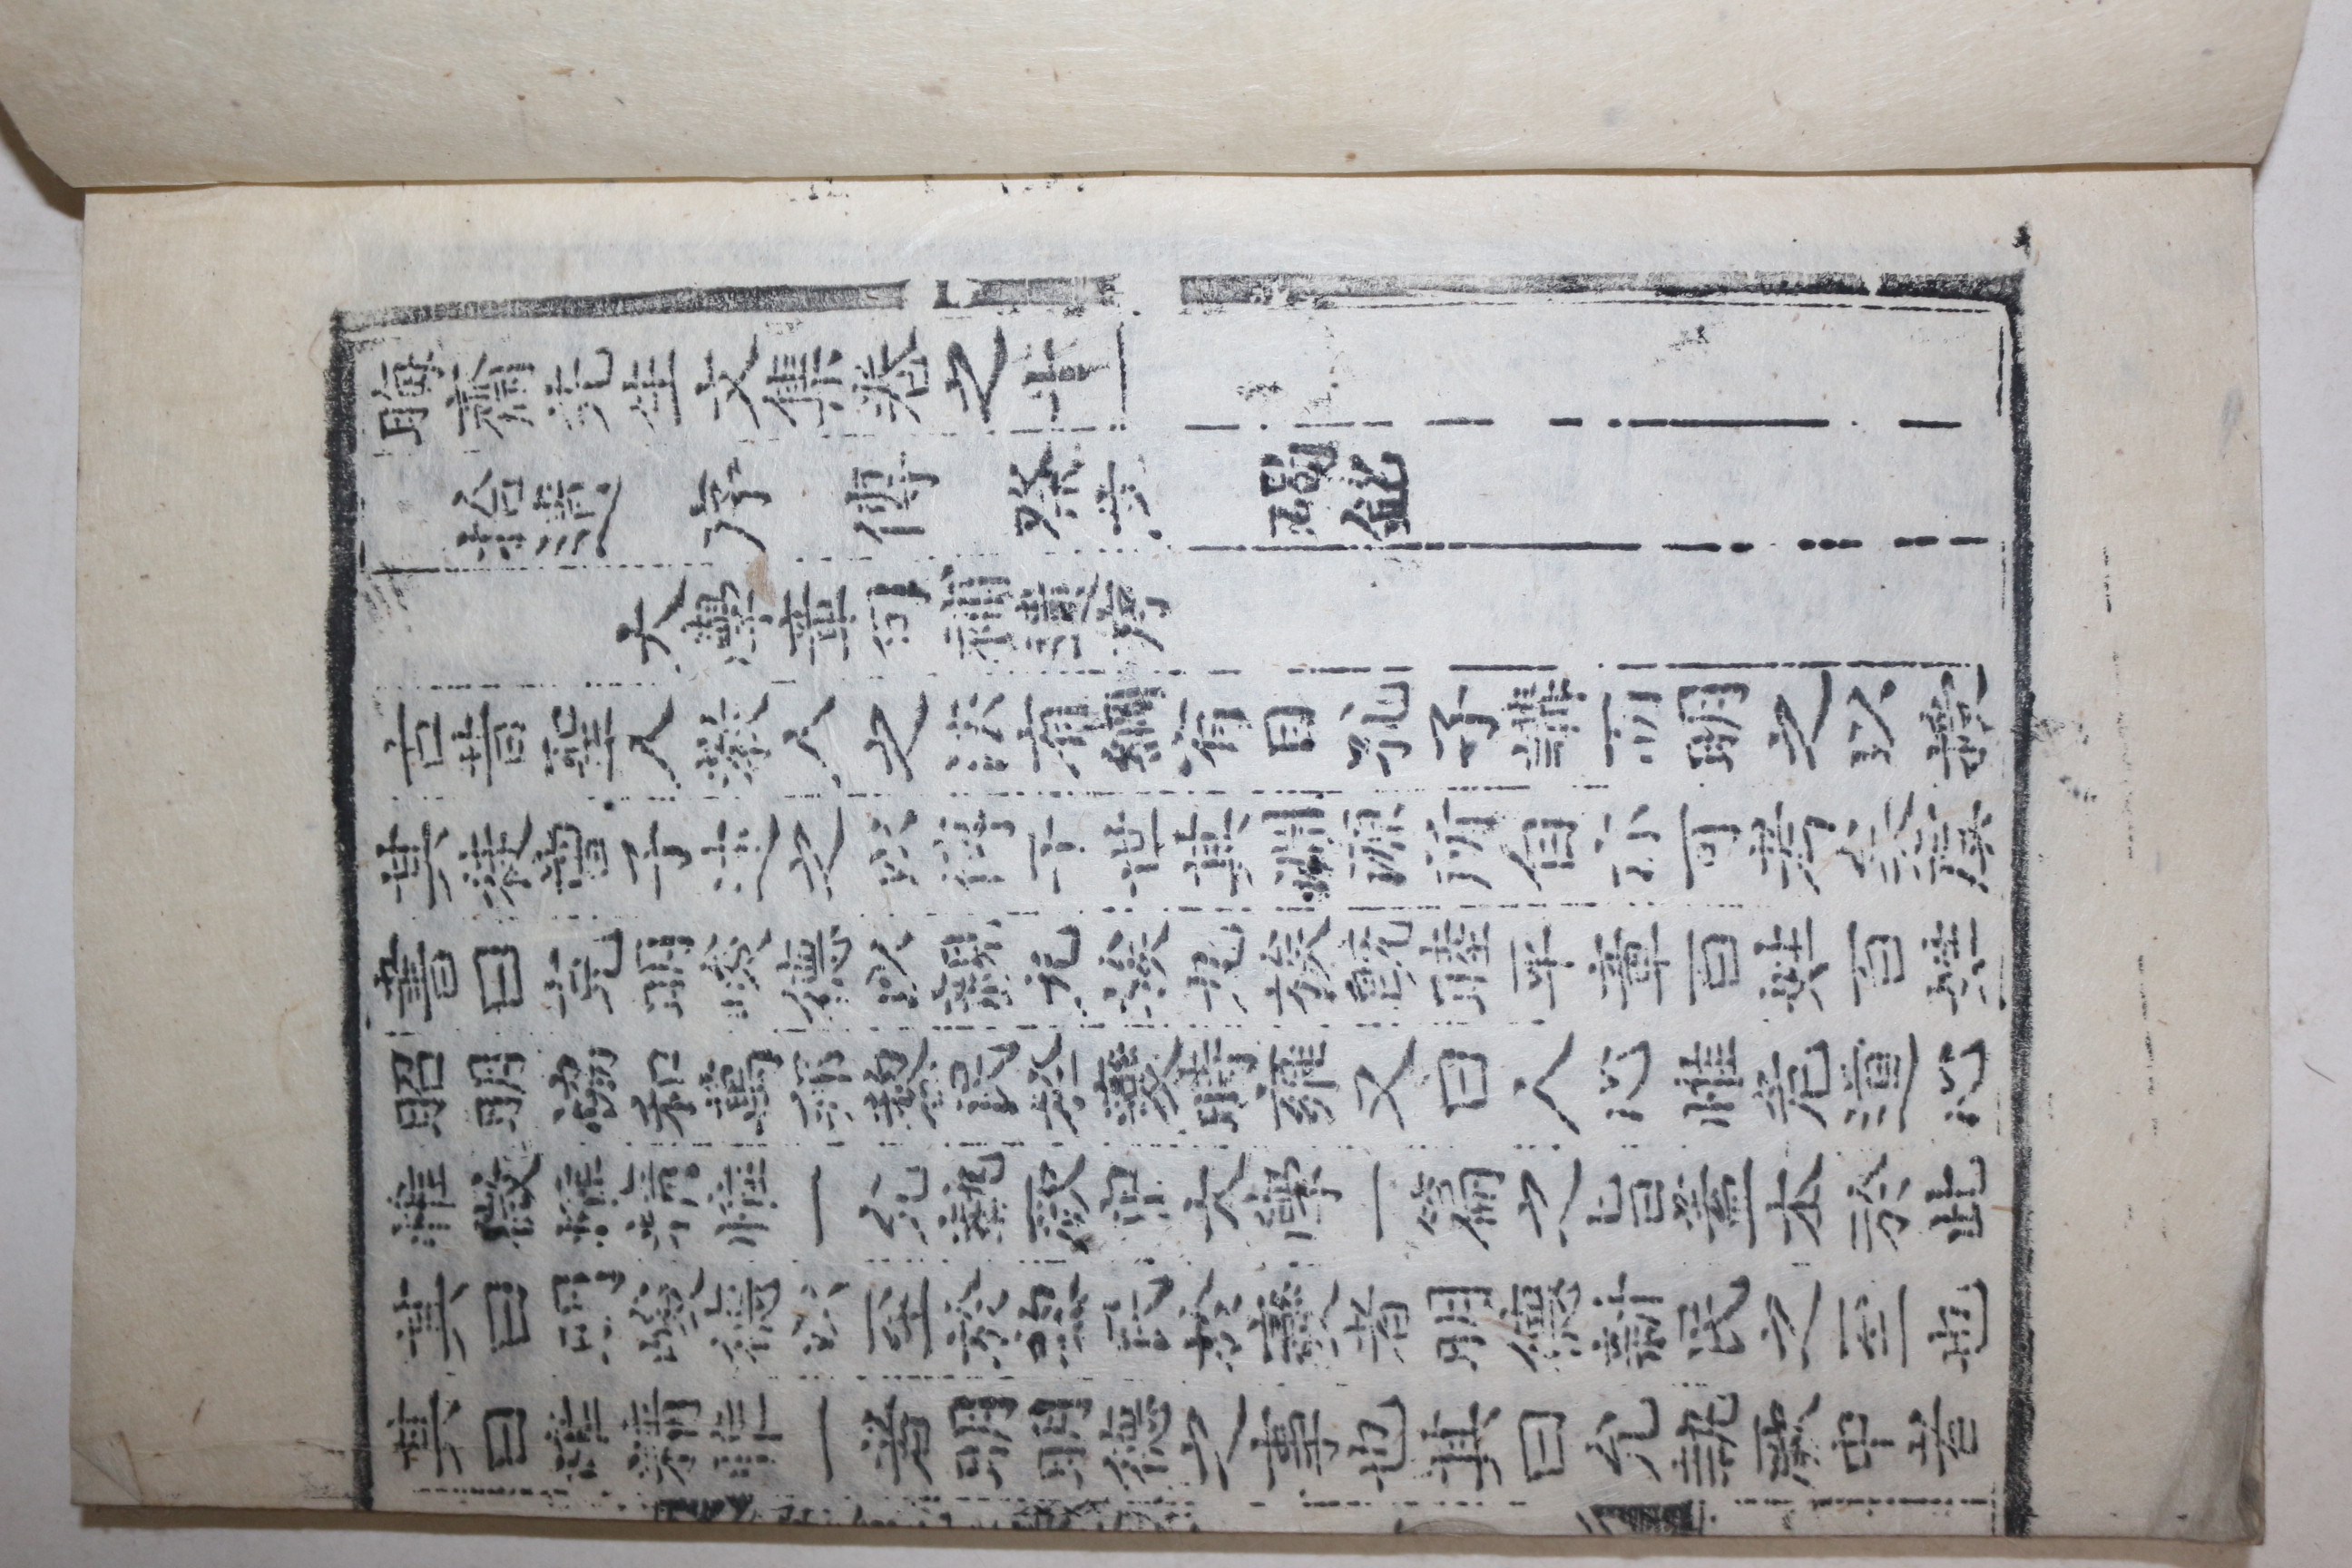 晦齋先生文集卷之十一
拾遺 序 傳 祭文 碣銘
大學章句補遺序
古昔聖人敎人之法有綱有目孔子講而明之以
其徒曾子述之以傳于世其淵源所自亦可考矣虞
書曰克明峻德以親九族九族旣睦平章百姓百姓
昭明協和萬邦黎民於變時雍又曰人心惟危道心
惟微惟精惟一允執厥中大學一篇之旨蓋本於此
其曰明峻德以至於黎民於變者明德新民之至也
其曰惟精惟一者明明德之事也其曰允執厥中者